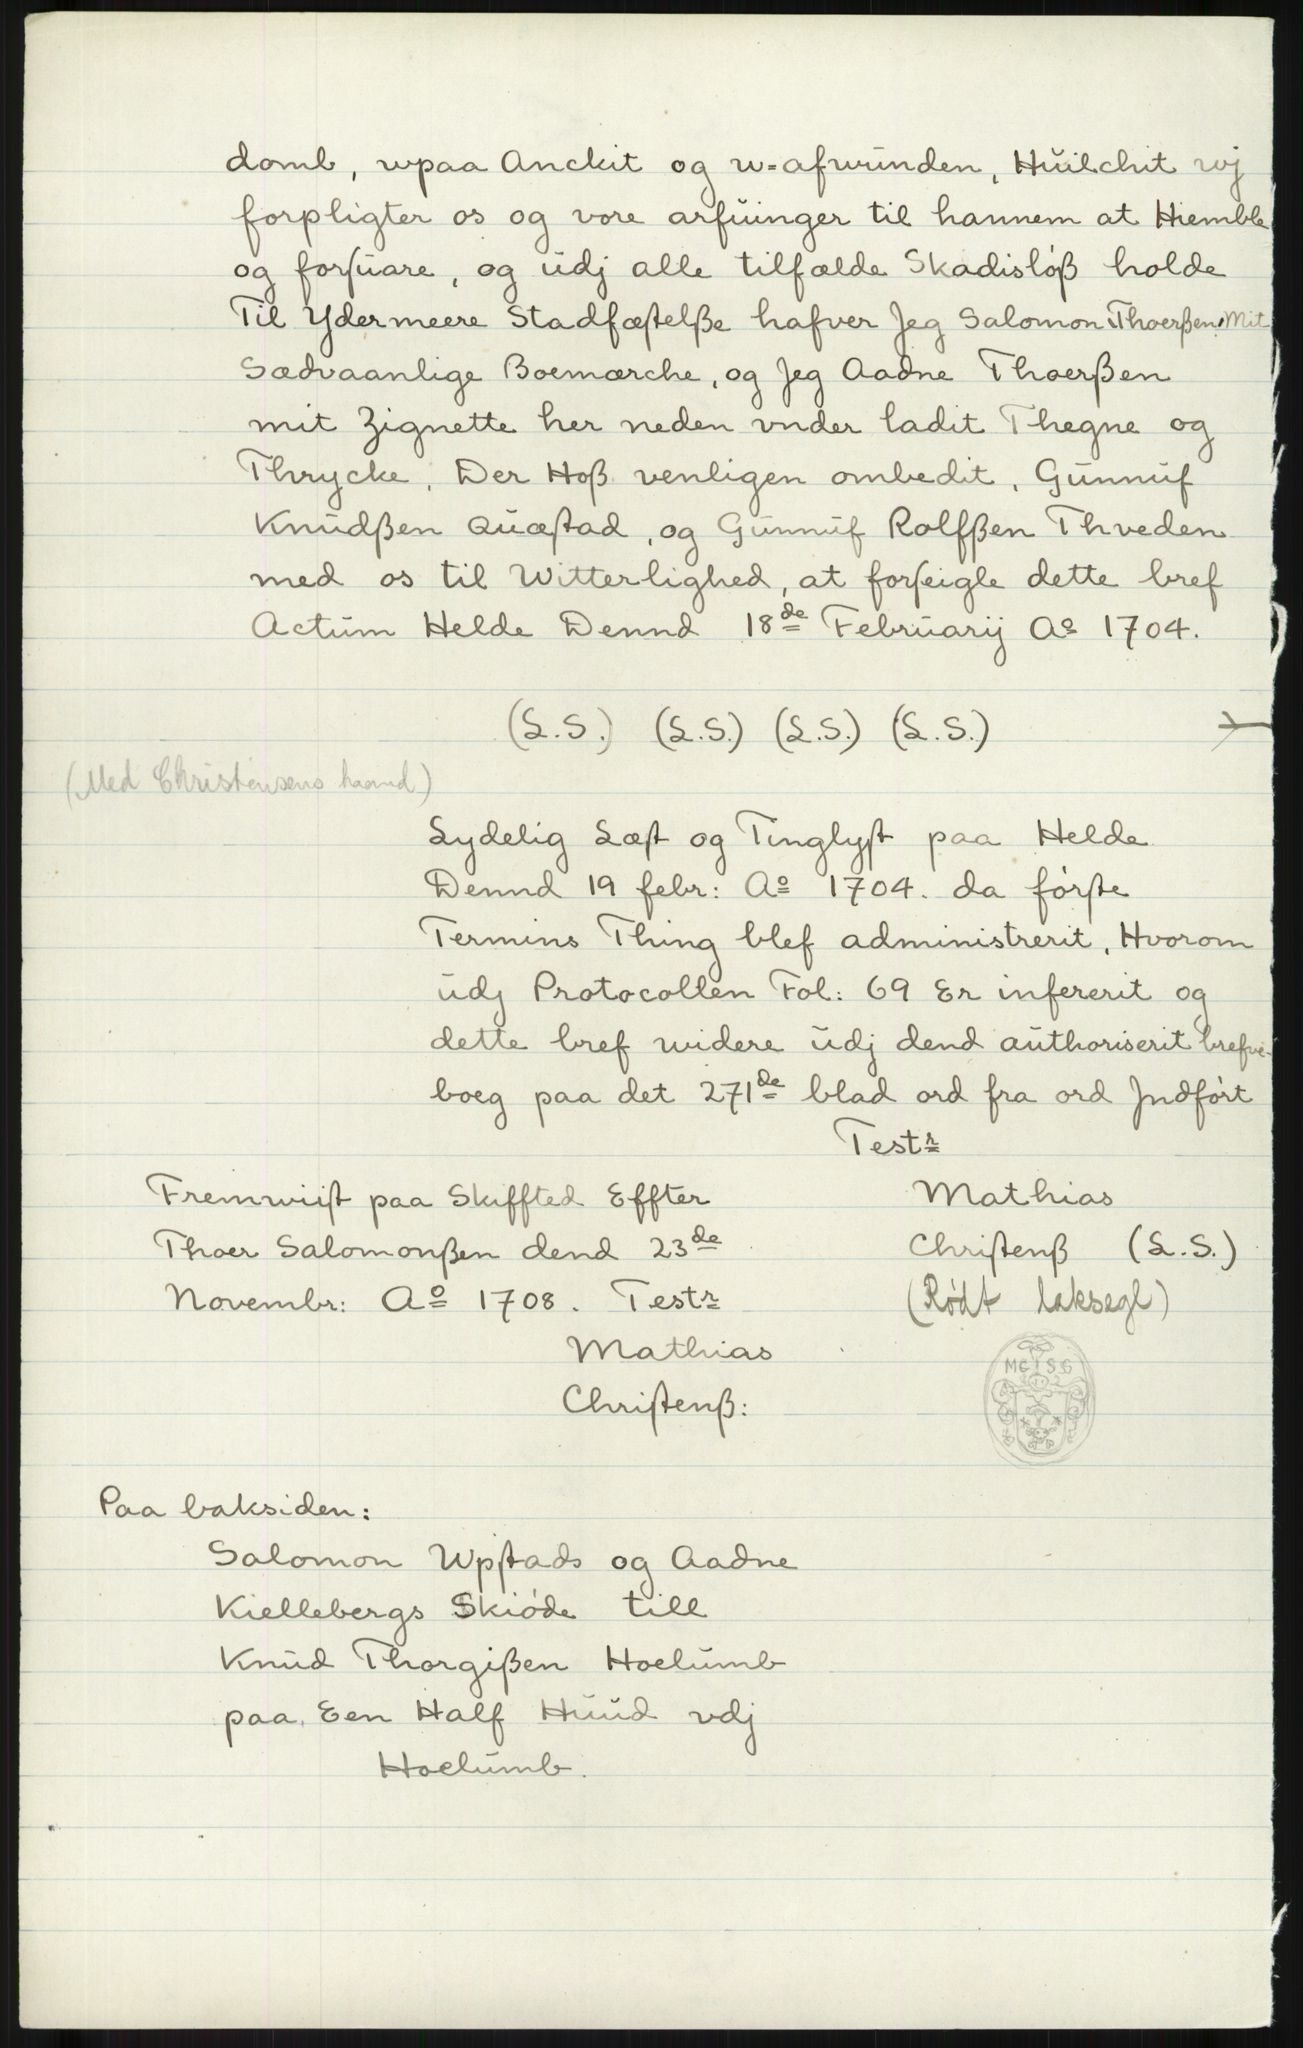 domb, wpaa Anckit og w=afwünden, Hüilchit wj
forpligter os og vore arfüinger til hannem at Hiemble
og forsüare, og üdj alle tilfælde Skadislóß holde
Til Ydermeere Stadfæstelße hafver Jeg Salomon Thoerßen, Mit
Sædvaanlige Boemærche, og Jeg Aadne Thoerßen
mit Zignette her neden vnder ladit Thegne og
Thrycke, Der Hoß venligen ombedit, Günnüf
Knüdßen Qüæstad, og Günnüf Rolfßen Thveden
med os til Witterlighed, at forseigle dette bref
Actüm Helde Dennd 18de Februarij Ao 1704.
(L.S.) (L.S.) (L.S.) (L.S.)
(Med Christensens haand)
Lydelig Læst og Tinglyst paa Helde
Dennd 19 febr: Ao 1704. da fórste
Termins Thing blef administrerit, Hvorom
üdj Protocollen Fol: 69 Er infererit og
dette bref widere üdj dend aüthoriserit brefve-
boeg paa det 271de blad ord fra ord Jndfórt
Testr
Mathias
Christenß (L.S.)
(Rødt laksegl)
MC SG
Fremwiist paa Skiffted Effter
Thoer Salomonßen dend 23de
Novembr: Ao 1708. Testr
Mathias
Christenß:
Paa baksiden:
Salomon Wpstads og Aadne
Kiellebergs Skióde till
Knüd Thorgißen Hoelümb
paa Een Half Hüüd vdj
Hoelümb.